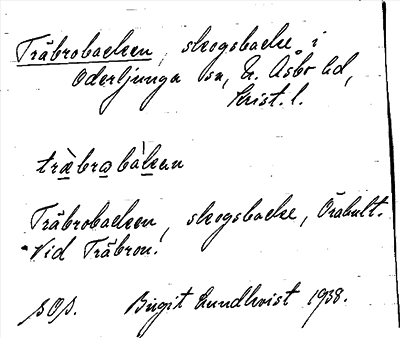 Träbrobacken, skogsbacke i
Oderljunga sn, N. Åsbo hd,
Krist. l.
träbrobàken
Träbrobacken, skogsbacke, Örahult.
Vid Träbron.
Birgit Lundkvist 1938.